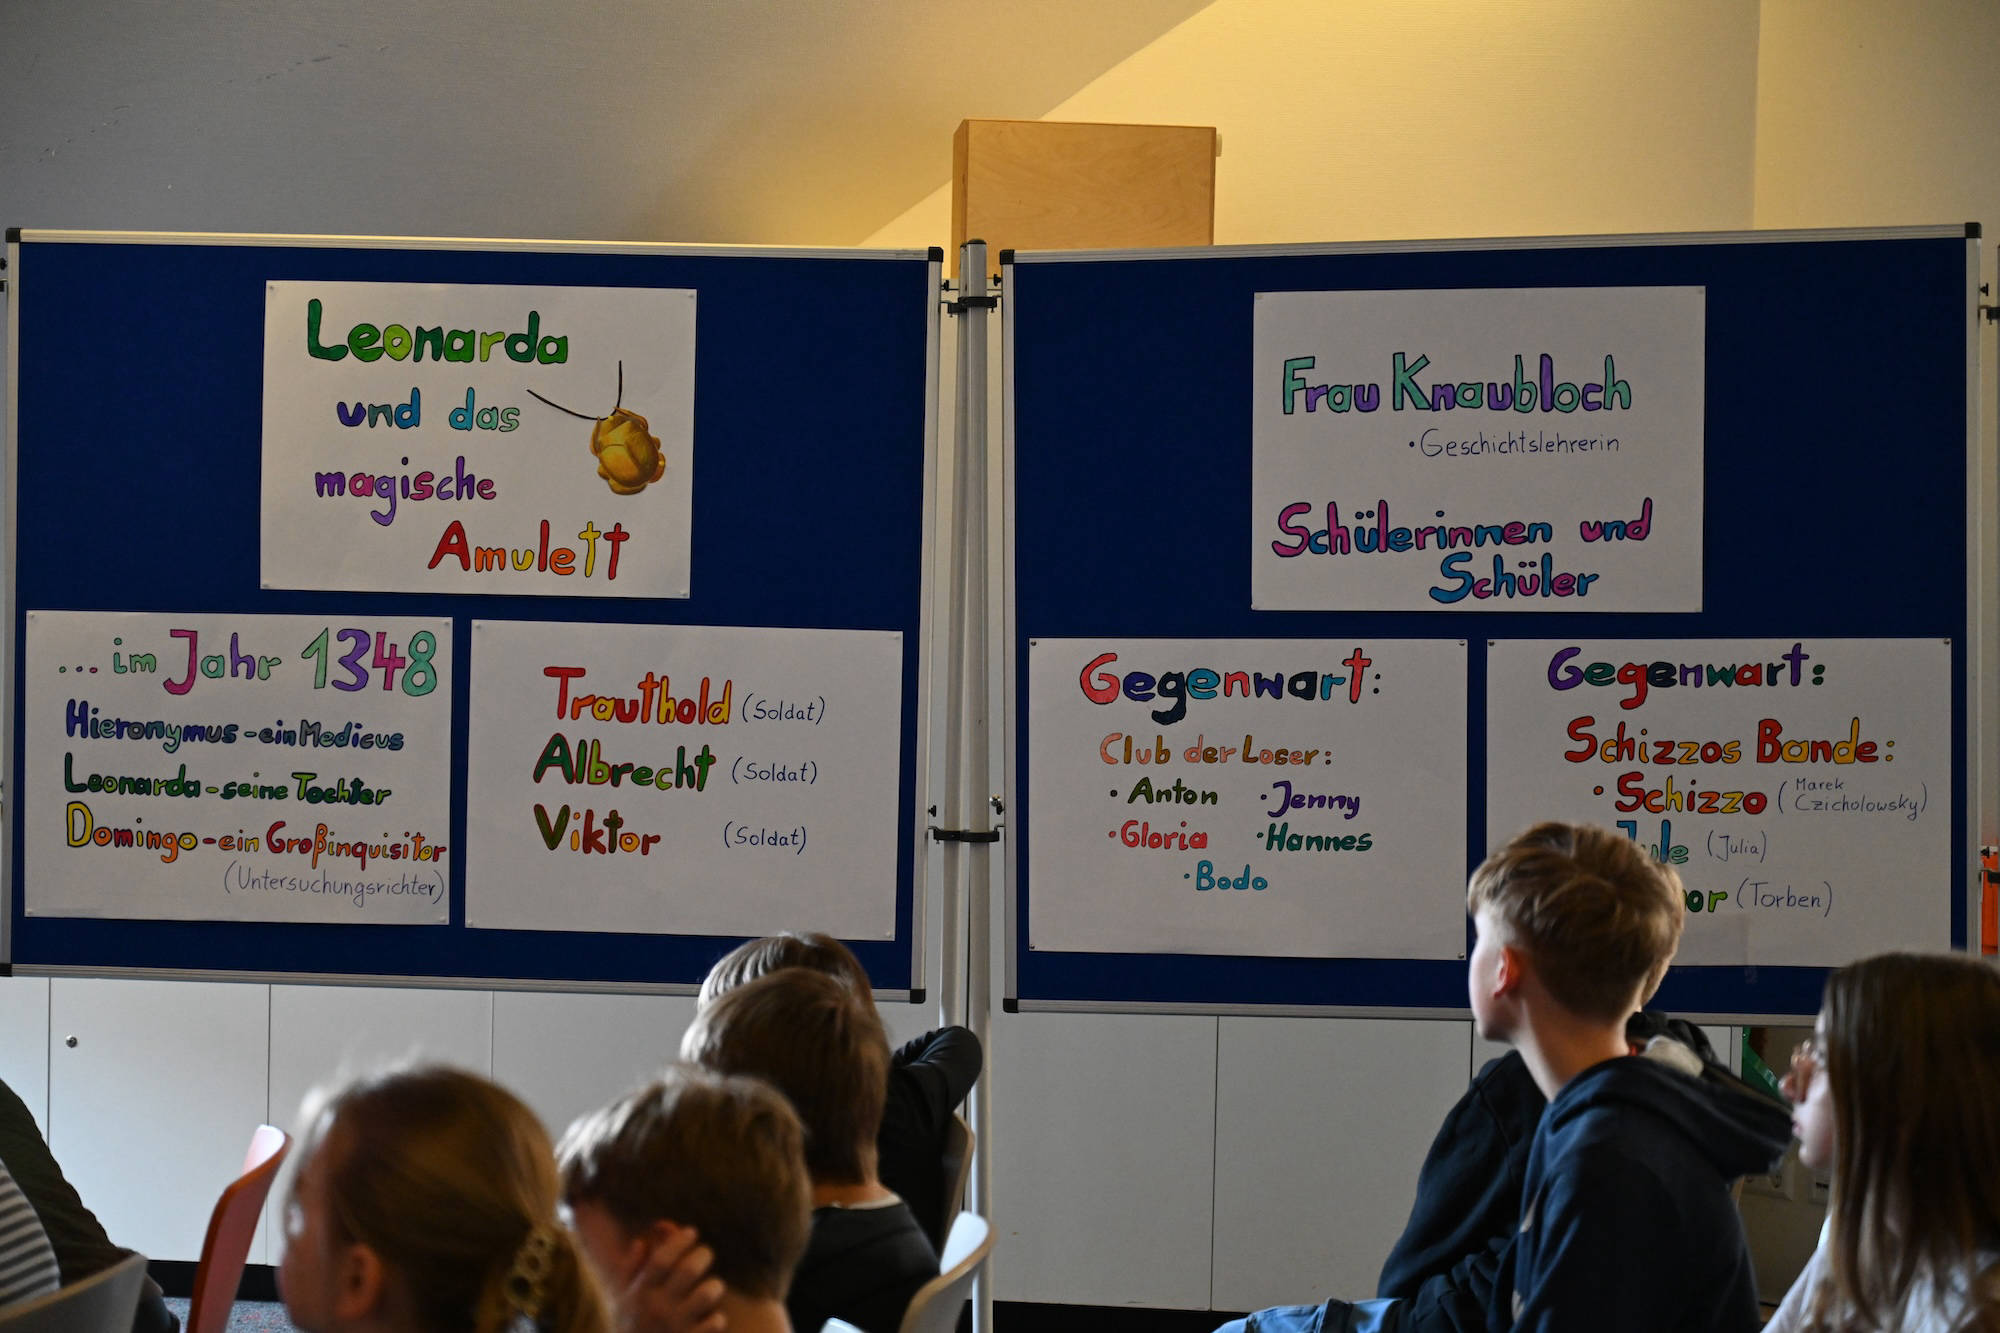 Leonarda
und das
magische
Amulett
... im Jahr 1348
Hieronymus - ein Medicus
Leonarda - seine Tochter
Domingo - ein Großinquisitor
(Untersuchungsrichter)
Trauthold (Soldat)
Albrecht (Soldat)
Viktor (Soldat)
Frau Knaubloch
• Geschichtslehrerin
Schülerinnen und
Schüler
Gegenwart:
Club der Loser:
• Anton • Jenny
• Gloria • Hannes
• Bodo
Gegenwart:
Schizzos Bande:
• Schizzo (Marek Czicholowsky)
(Julia)
(Torben)